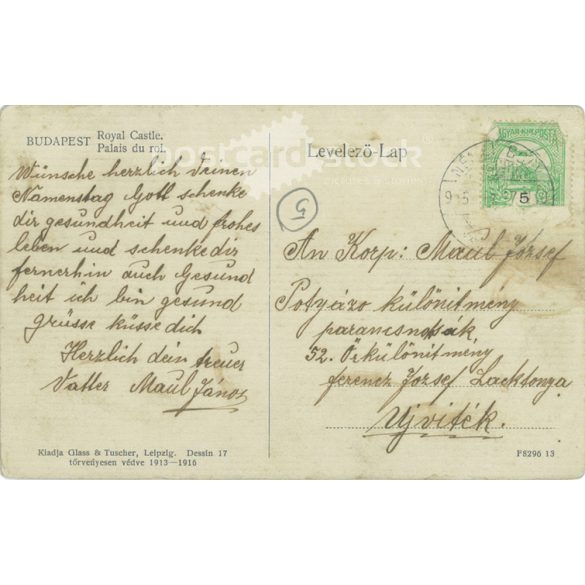 BUDAPEST Royal Castle.
Palais du roi.
Levelező-Lap
MAGYAR KIR. POSTA
5
5
Wünsche herzlich deinen
Namenstag Gott schenke
dir gesundheit und frohes
leben und schenke dir
fernerhin auch Gesund
heit ich bin gesund
grüsse küsse dich
Herzlich dein treuer
Vatter Maul János
An Korp: Maul József
Potyázo különitmény
parancsnok,
52. Örkülönitmény
ferencz József Lacktonya
Ujviték.
Kiadja Glass & Tuscher, Leipzig. Dessin 17
törvényesen védve 1913—1916
F8296 13
postcard